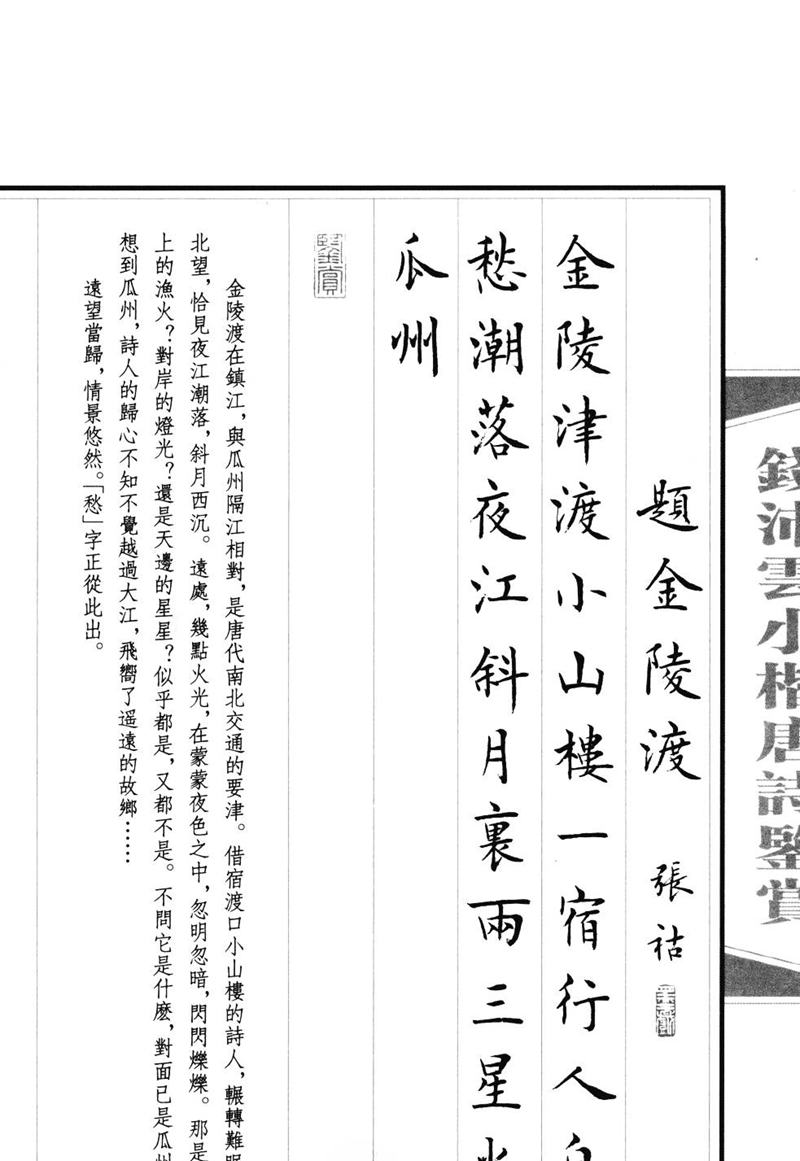 錢沛雲小楷唐詩鑒賞
題金陵渡 張祜
金陵津渡小山樓一宿行人自
愁潮落夜江斜月裏兩三星火
瓜州
鑒賞
金陵渡在鎮江，與瓜州隔江相對，是唐代南北交通的要津。借宿渡口小山樓的詩人，輾轉難眠
北望，恰見夜江潮落，斜月西沉。遠處，幾點火光，在蒙蒙夜色之中，忽明忽暗，閃閃爍爍。那是
上的漁火？對岸的燈光？還是天邊的星星？似乎都是，又都不是。不問它是什麽，對面已是瓜州
想到瓜州，詩人的歸心不知不覺越過大江，飛嚮了遥遠的故鄉……
遠望當歸，情景悠然。「愁」字正從此出。